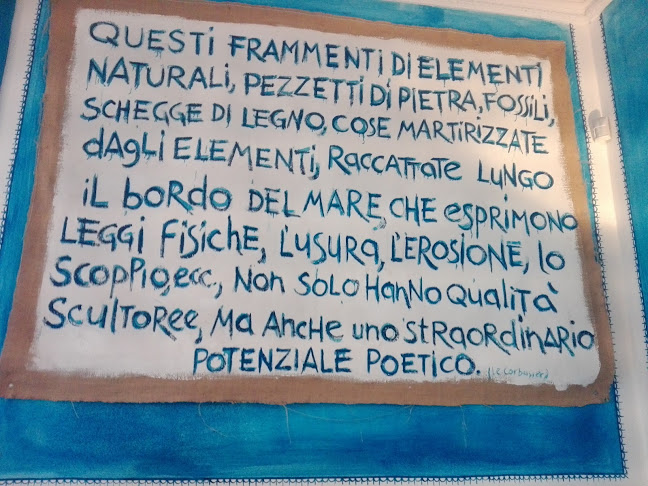 QUESTI FRAMMENTI DI ELEMENTI
NATURALI, PEZZETTI DI PIETRA, FOSSILI,
SCHEGGE DI LEGNO, COSE MARTIRIZZATE
dAgLI ELEMENTI, RACCATTATE LUNGO
iL bORdO DEL MARE, CHE esPRIMONO
LEGGI FiSiCHE, L'USURA, L'EROSIONE, lo
Scoppio, ecc, NON SOLO HANNO QUALITÀ
ScULTOREE, MA ANCHE UNO STRAORDINARIO
POTENZIALE POETICO. (Le Corbusier)